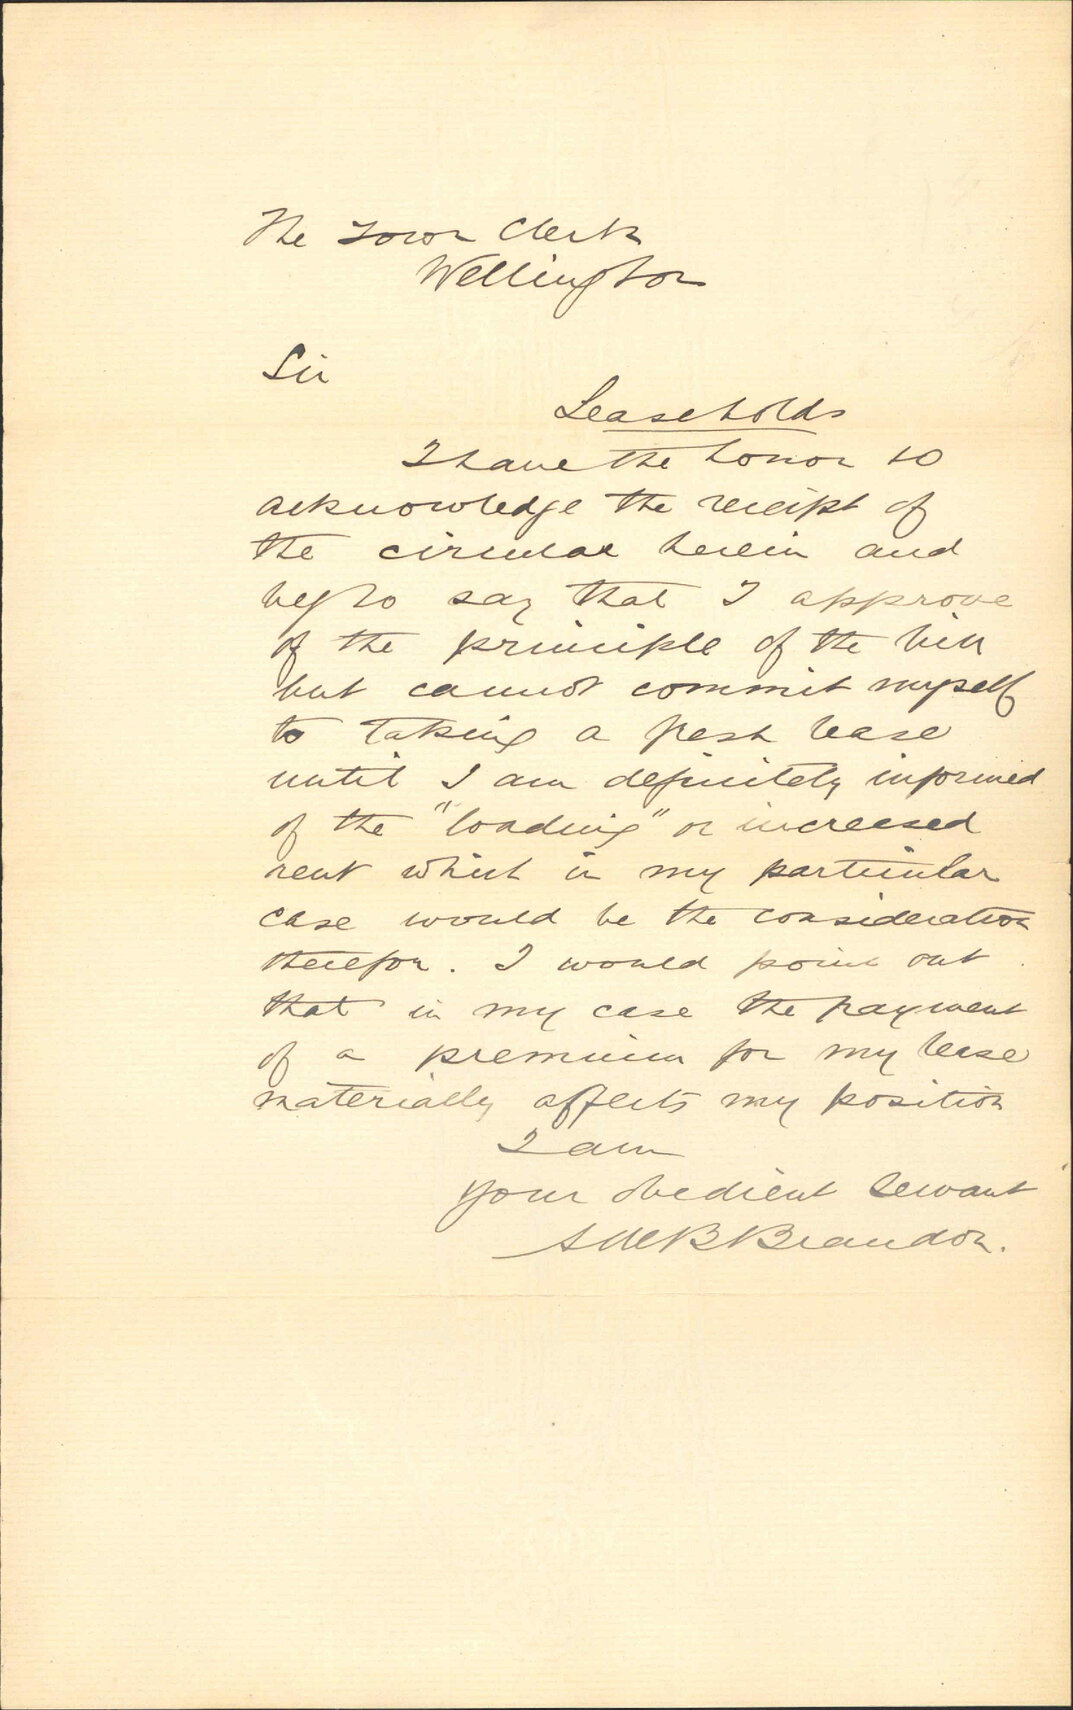 The Town Clerk
Wellington
Sir
Leaseholds
I have the honor to
acknowledge the receipt of
the circular herein and
beg to say that I approve
of the principle of the bill
but cannot commit myself
to taking a fresh lease
until I am definitely informed
of the "loading" or increased
rent which in my particular
case would be the consideration
therefor. I would point out
that in my case the payment
of a premium for my lease
materially affects my position
I am
Your obedient servant
Brandon.